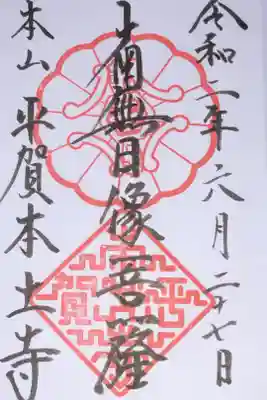 令和二年六月二十七日
南無日像菩薩
本山 平賀本土寺